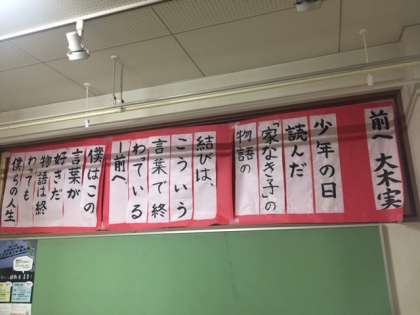 前へ 大木実
少年の日
読んだ
「家なき子」の
物語の
結びは、
こういう
言葉で終
わっている
―前へ
僕はこの
言葉が
好きだ
物語は終
わっても
僕らの人生